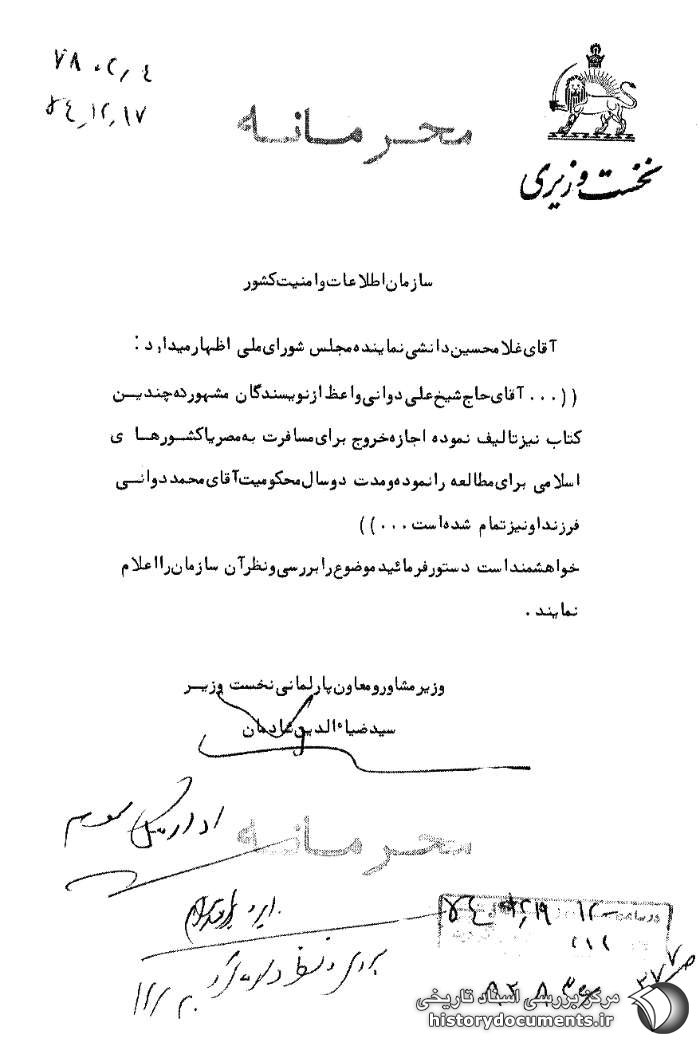 ۷۸۰۲٫۴
۵۴٫۱۲٫۱۷
محرمانه
نخست وزیری
سازمان اطلاعات و امنیت کشور
آقای غلامحسین دانشی نماینده مجلس شورای ملی اظهار میدارد :
((... آقای حاج شیخ علی دوانی واعظ از نویسندگان مشهور ده چندین
کتاب نیز تالیف نموده اجازه خروج برای مسافرت به مصر یا کشورهای
اسلامی برای مطالعه را نموده و مدت دو سال محکومیت آقای محمد دوانی
فرزند او نیز تمام شده است ...))
خواهشمند است دستور فرمائید موضوع را بررسی و نظر آن سازمان را اعلام
نمایند .
وزیر مشاور و معاون پارلمانی نخست وزیر
سید ضیاءالدین شادمان
اداره کل سوم
محرمانه
مرکز بررسی اسناد تاریخی
historydocuments.ir